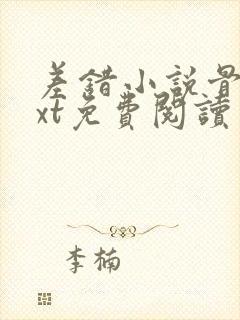 差錯小說骨
xt免費閱讀
李楠